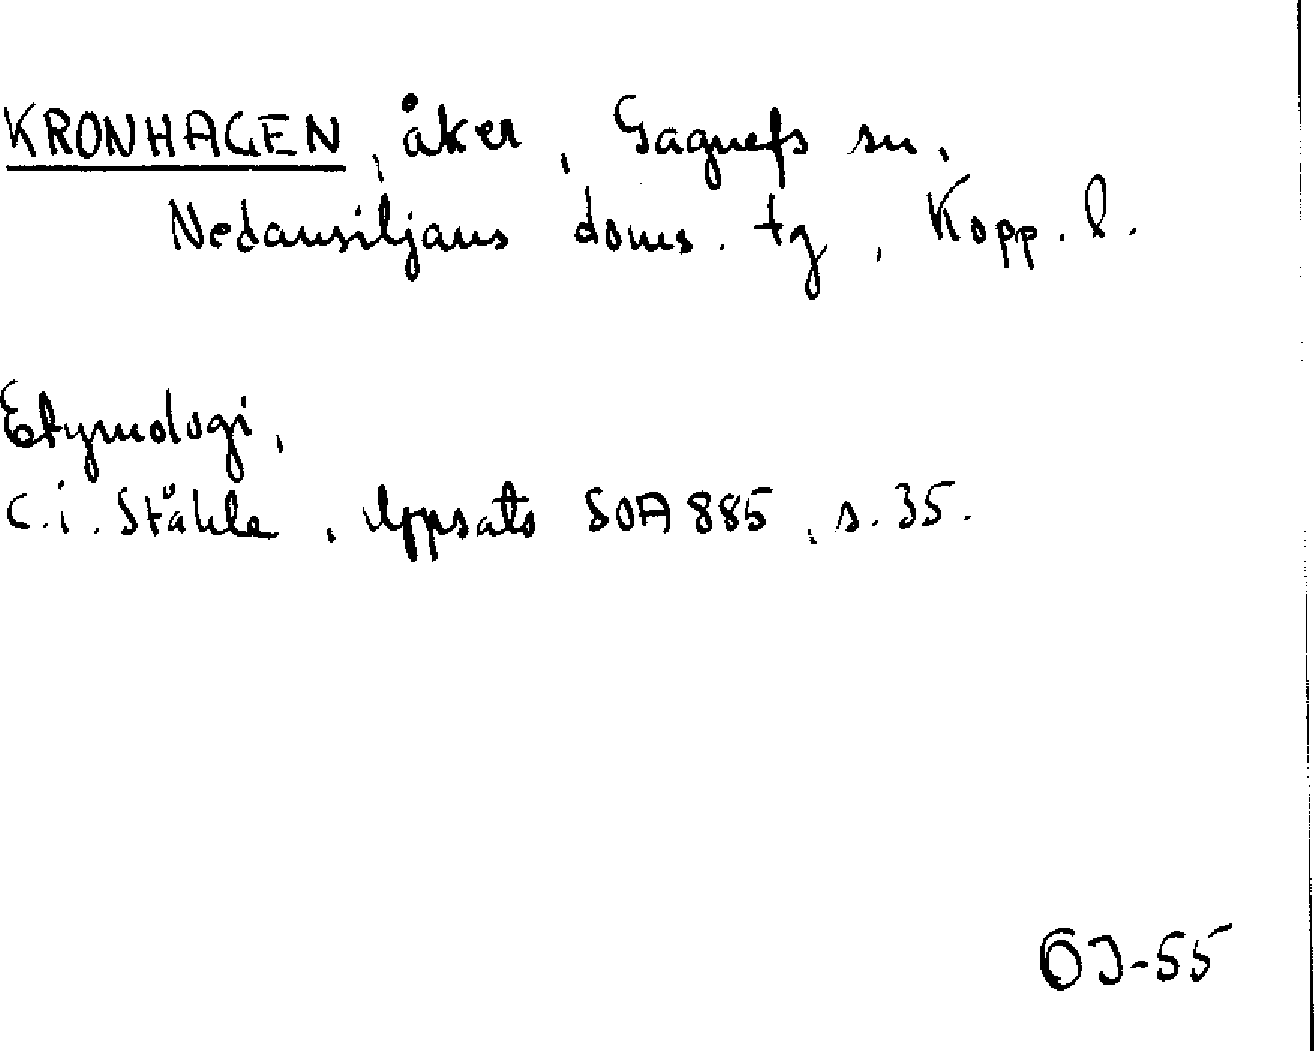 KRONHAGEN, åker, Gagnefs sn,
Nedansiljans doms. tg, Kopp. l.
Etymologi,
C.i. Ståhle, Uppsats SOA 885, s. 35.
OJ-55